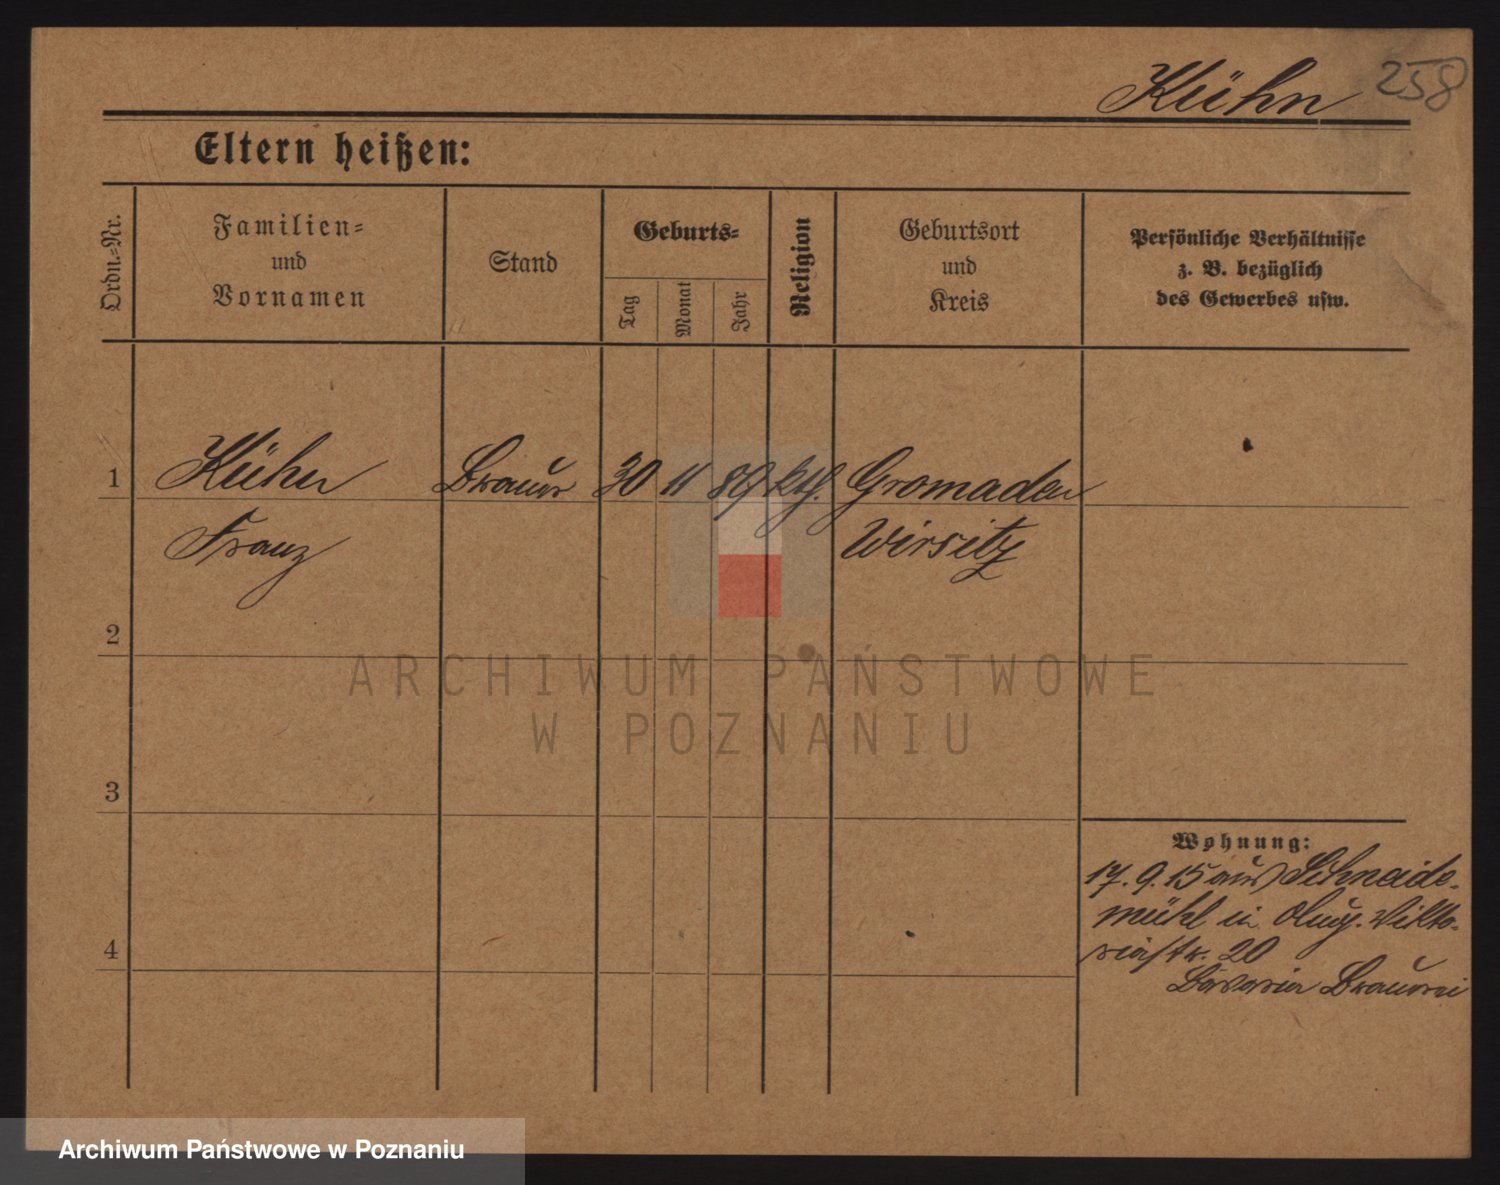 Kühn 258
Eltern heißen:
Ordn.-Nr.
Familien-
und
Vornamen
Stand
Geburts-
Tag
Monat
Jahr
Religion
Geburtsort
und
Kreis
Persönliche Verhältnisse
z. B. bezüglich
des Gewerbes usw.
1 Kühn Brauer 30 11 89 kth. Gromaden
Franz Wirsitz
2
ARCHIWUM PAŃSTWOWE
W POZNANIU
3
Wohnung:
17. 9. 15 aus Schneide-
mühl in Vikto-
riastr. 20
4
Bavaria Brauerei
Archiwum Państwowe w Poznaniu